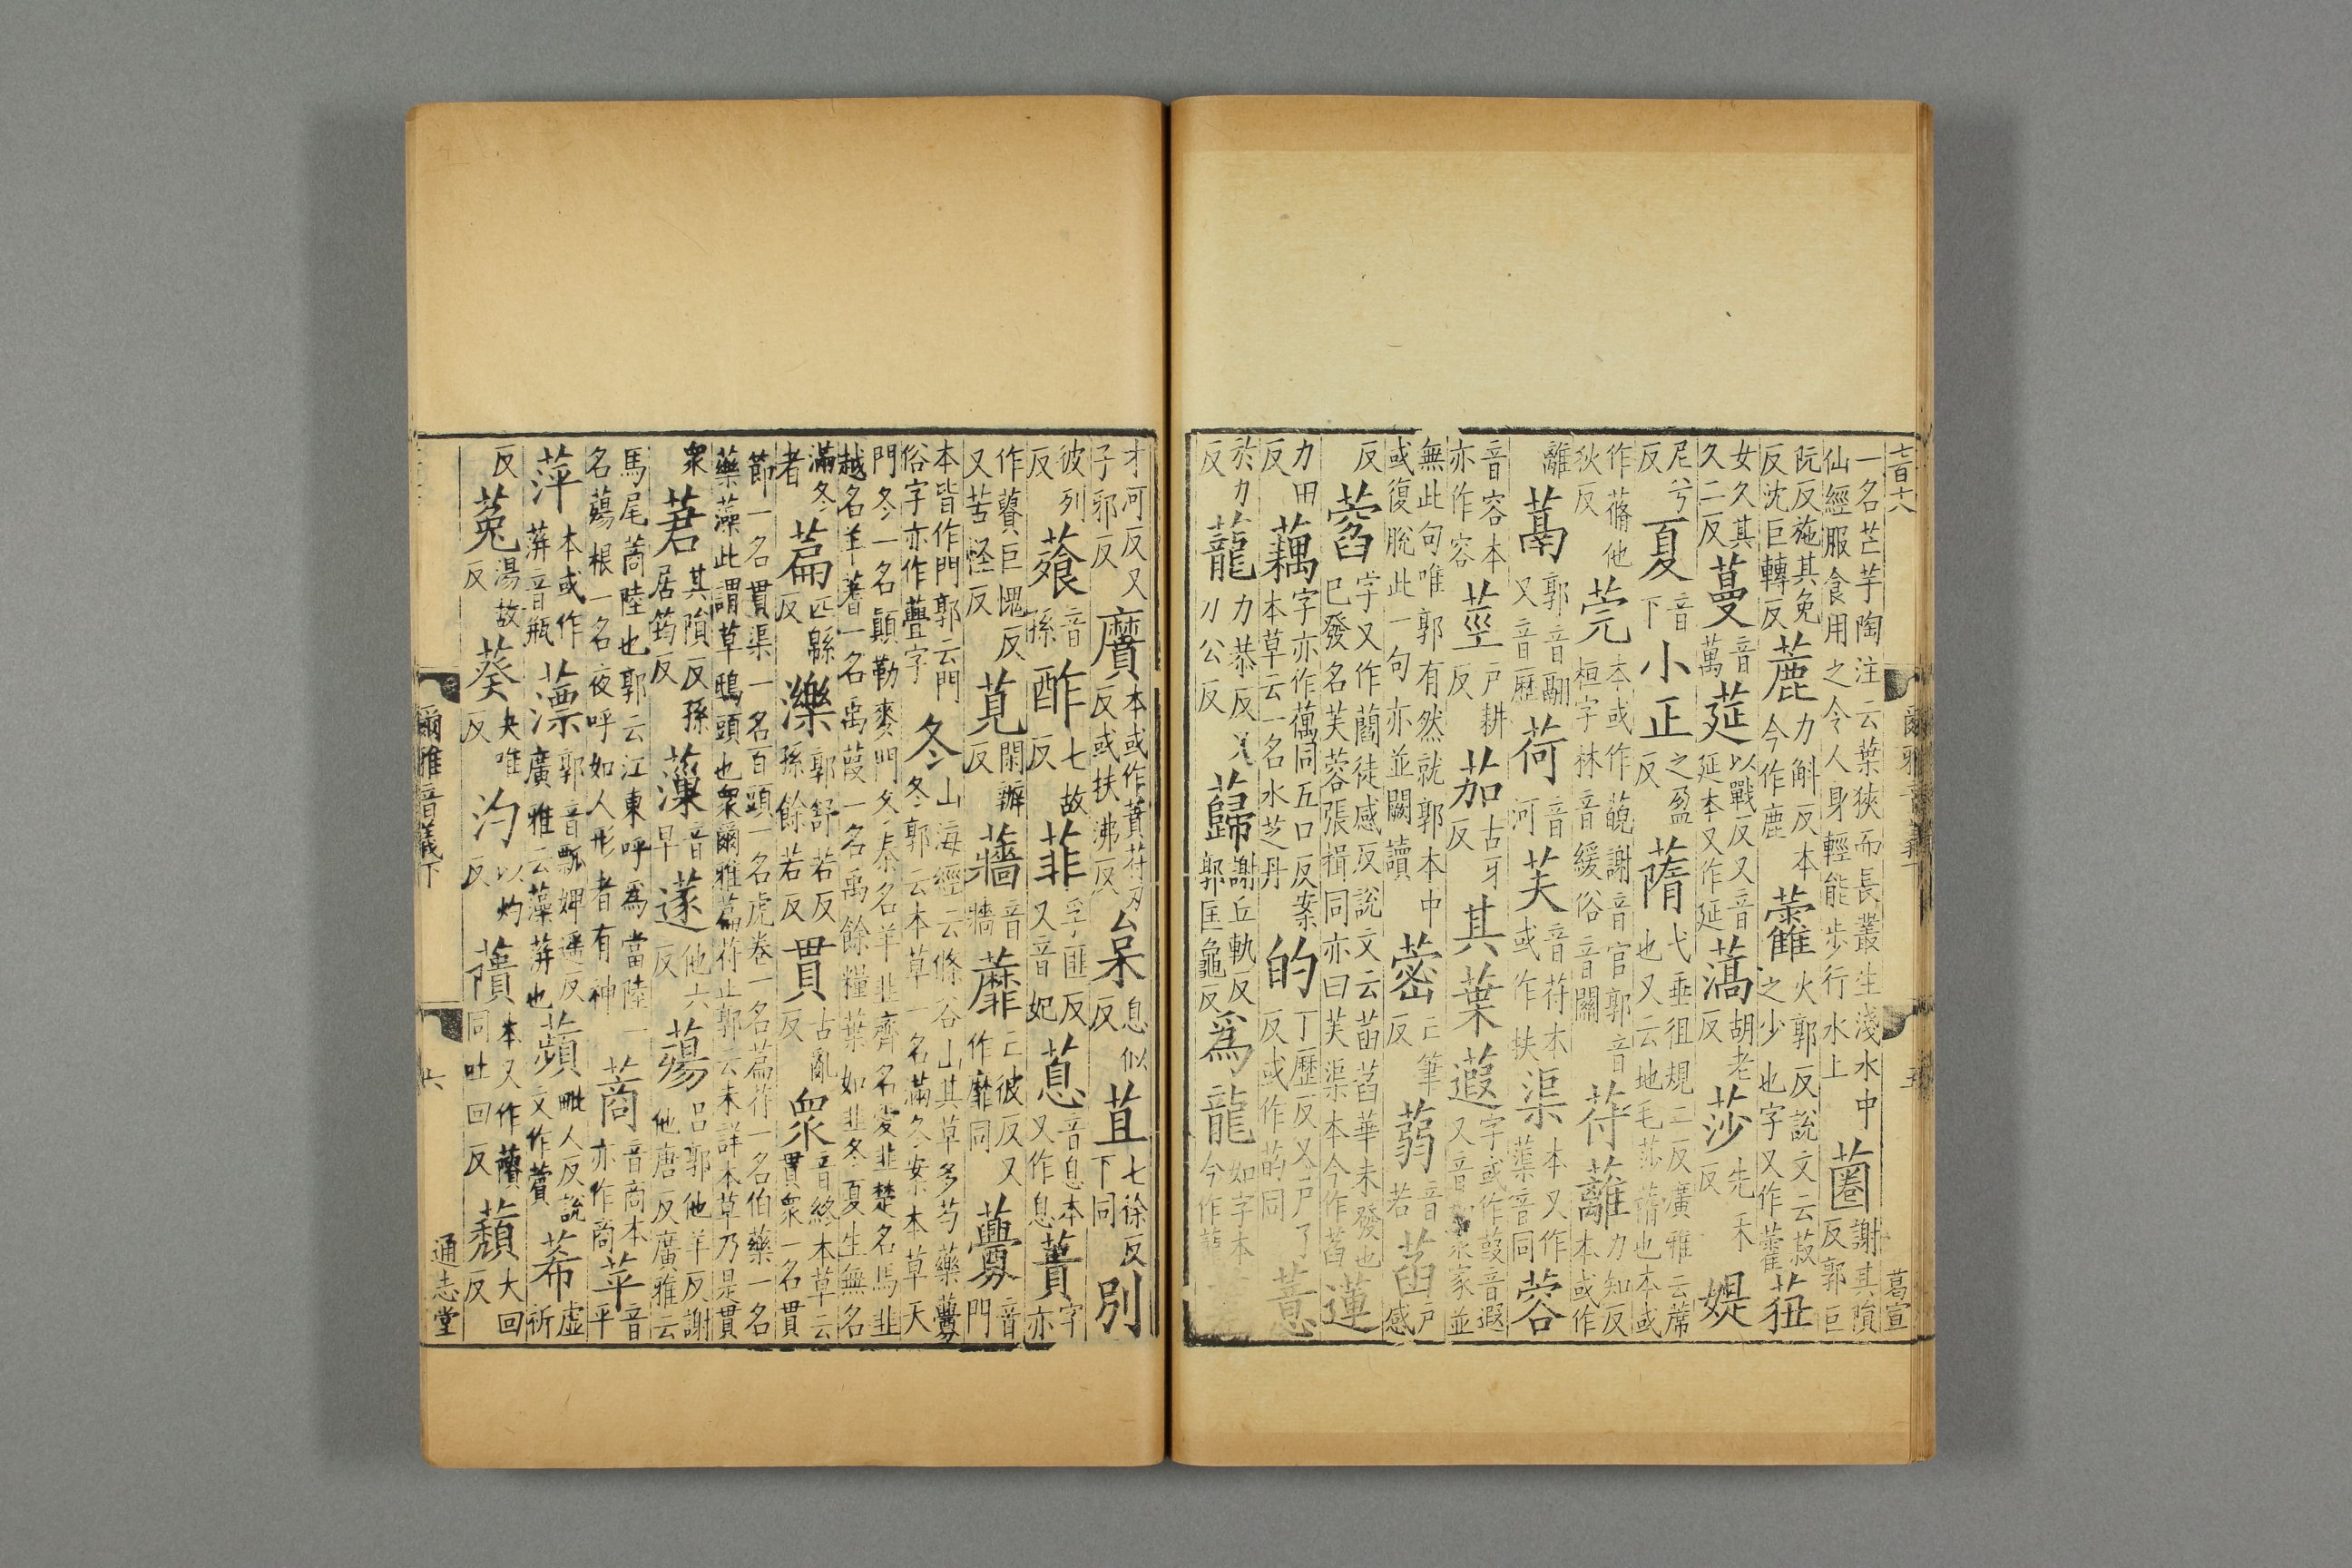 七百六
一名芒芋陶注云葉狹而長叢生淺水中仙經服食用之令人身輕能步行水上蔨謝其隕反郭巨
阮反施其免反沈巨轉反蔍力斛反本今作鹿蘿火郭反說文云菽之少也字又作藿莥
女久其久二反蔓音萬莚以戰反又音延本又作延蒿胡老反莎先禾反媞
尼兮反夏音下小正之盈反蓨弋垂徂規二反廣雅云蓆也又云地毛莎蓨也本或
作蓨他狄反莞本或作謝音官郭音桓字林音緩俗音關苻音離力知反本或作
離蒚郭音翮又音歷荷音河芙音苻本或作扶渠本又作蕖音同蓉
音容本亦作容莖戶耕反茄古牙反其葉蕸字或作葭音遐又音眾家並
無此句唯郭有然就郭本中或復脫此一句亦並闕讀蔤亡筆反蒻音若菡戶感
反萏字又作藺徒感反說文云菡萏華未發也已發名芙蓉張揖同亦曰芙渠本今作萏蓮
力田反藕字亦作蕅同五口反案本草云一名水芝丹的丁歷反又戶了反或作菂同薏
於力反蘢力恭反又力公反蘬謝丘軌反郭匡龜反為龍如字本今作蘢
爾雅音義下 五 葛宣
才河反又子邪反黂本或作蕡苻刃反或扶沸反枲息似反苴七徐反下同別
彼列反薞音孫酢七故反菲孚匪反又音妃蒠音息本又作息蕢字亦
作巨愧反又苦怪反莧閑辦反蘠音牆蘼亡彼反又作靡同虋音門
本皆作門郭云門俗字亦作虋字冬山海經云條谷山其草多芍藥虋冬郭云本草一名滿冬案本草天
門冬一名顛勒麥門冬秦名羊韭齊名愛韭楚名馬韭越名羊蓍一名禹葭一名禹餘糧葉如韭冬夏生無名
滿冬者萹匹緜反濼郭舒若反孫餘若反貫古亂反眾音終本草云貫眾一名貫
節一名貫渠一名百頭一名虎卷一名萹苻一名伯藥一名藥藻此謂草鴟頭也眾爾雅萹苻止郭云未詳本草乃是貫
眾莙其隕反孫居筠反薻音早蓫他六反蕩呂郭他羊反謝他唐反廣雅云
馬尾蔏陸也郭云江東呼為當陸一名蕩根一名夜呼如人形者有神蔏音商本亦作商苹音平
萍本或作蓱音瓶薸郭音瓢婢遥反廣雅云藻蓱也蘋毗人反說文作薲莃虛祈
反菟湯故反葵夬唯反汋以灼反藬本又作蘈同吐回反蘈大回反
爾雅音義下 六 通志堂